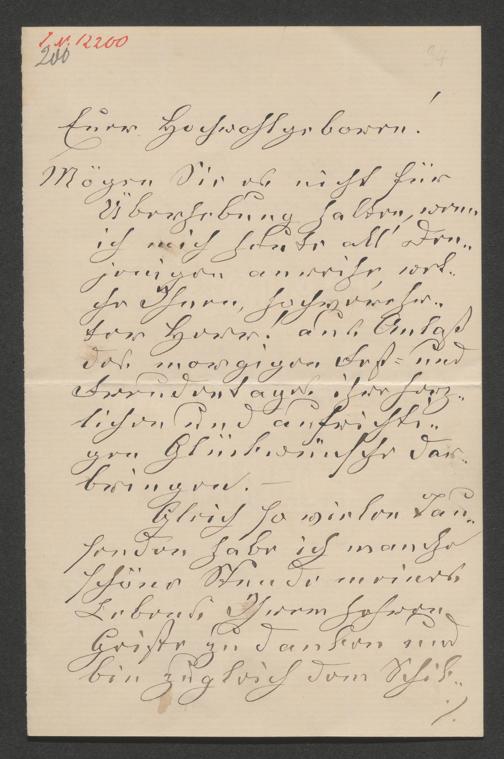 I. N. 12200
200
Euer Hochwohlgeboren!
Mögen Sie es nicht für
Überhebung halten, wenn
ich mich heute all' Den-
jenigen anreihe, wel-
che Ihnen, hochverehr-
ter Herr! aus Anlaß
des morgigen Fest- und
Freudentages ihre herz-
lichen und aufrichti-
gen Glückwünsche dar-
bringen. —
Gleich so vielen Tau-
senden habe ich manche
schöne Stunde meines
Lebens Ihrem hohen
Geiste zu danken und
bin zugleich dem Schik-
./.